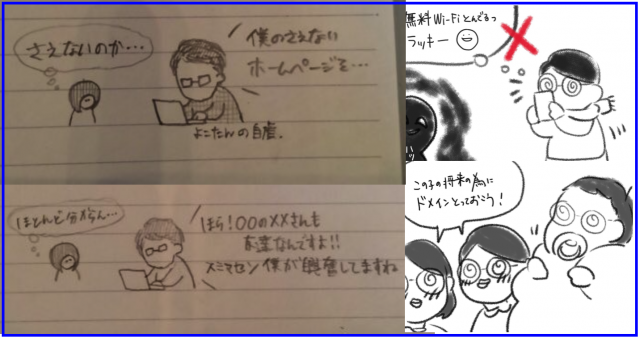 さえないのか…
僕のさえない
ホームページを…
よこたんの自虐.
ほとんど分からん…
ほら!〇〇の××さんも
友達なんですよ!!
スミマセン僕が興奮してますね
無料Wi-Fiとんでるっ
ラッキー
この子の将来の為に
ドメインとっておこう!